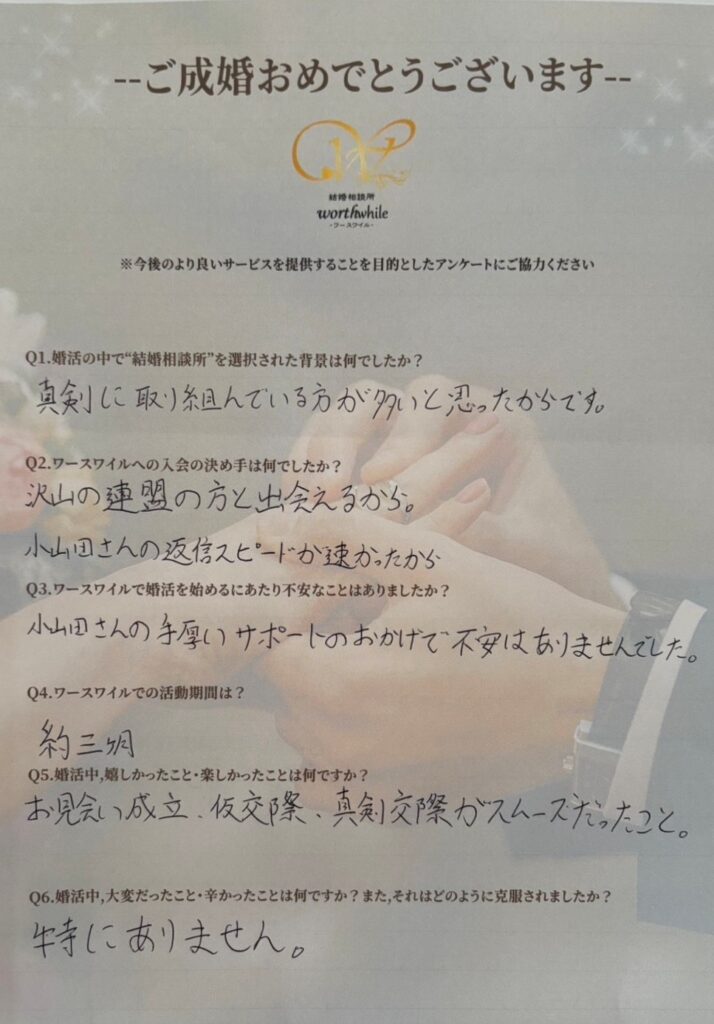 --ご成婚おめでとうございます--
結婚相談所
worthwhile
-ワースワイル-
※今後のより良いサービスを提供することを目的としたアンケートにご協力ください
Q1.婚活の中で“結婚相談所”を選択された背景は何でしたか？
真剣に取り組んでいる方が多いと思ったからです。
Q2.ワースワイルへの入会の決め手は何でしたか？
沢山の連盟の方と出会えるから。
小山田さんの返信スピードが速かったから
Q3.ワースワイルで婚活を始めるにあたり不安なことはありましたか？
小山田さんの手厚いサポートのおかげで不安はありませんでした。
Q4.ワースワイルでの活動期間は？
約三ヶ月
Q5.婚活中,嬉しかったこと・楽しかったことは何ですか？
お見合い成立、仮交際、真剣交際がスムーズだったこと。
Q6.婚活中,大変だったこと・辛かったことは何ですか？また,それはどのように克服されましたか？
特にありません。